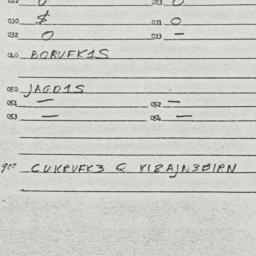 022 0 023 0
030 $ 031 0
032 0 033 —
040 BORUFK1S
050 JAGD1S
051 — 052 —
053 — 054 —
900 CUKPUFK3 Q K18AJN3B1PN